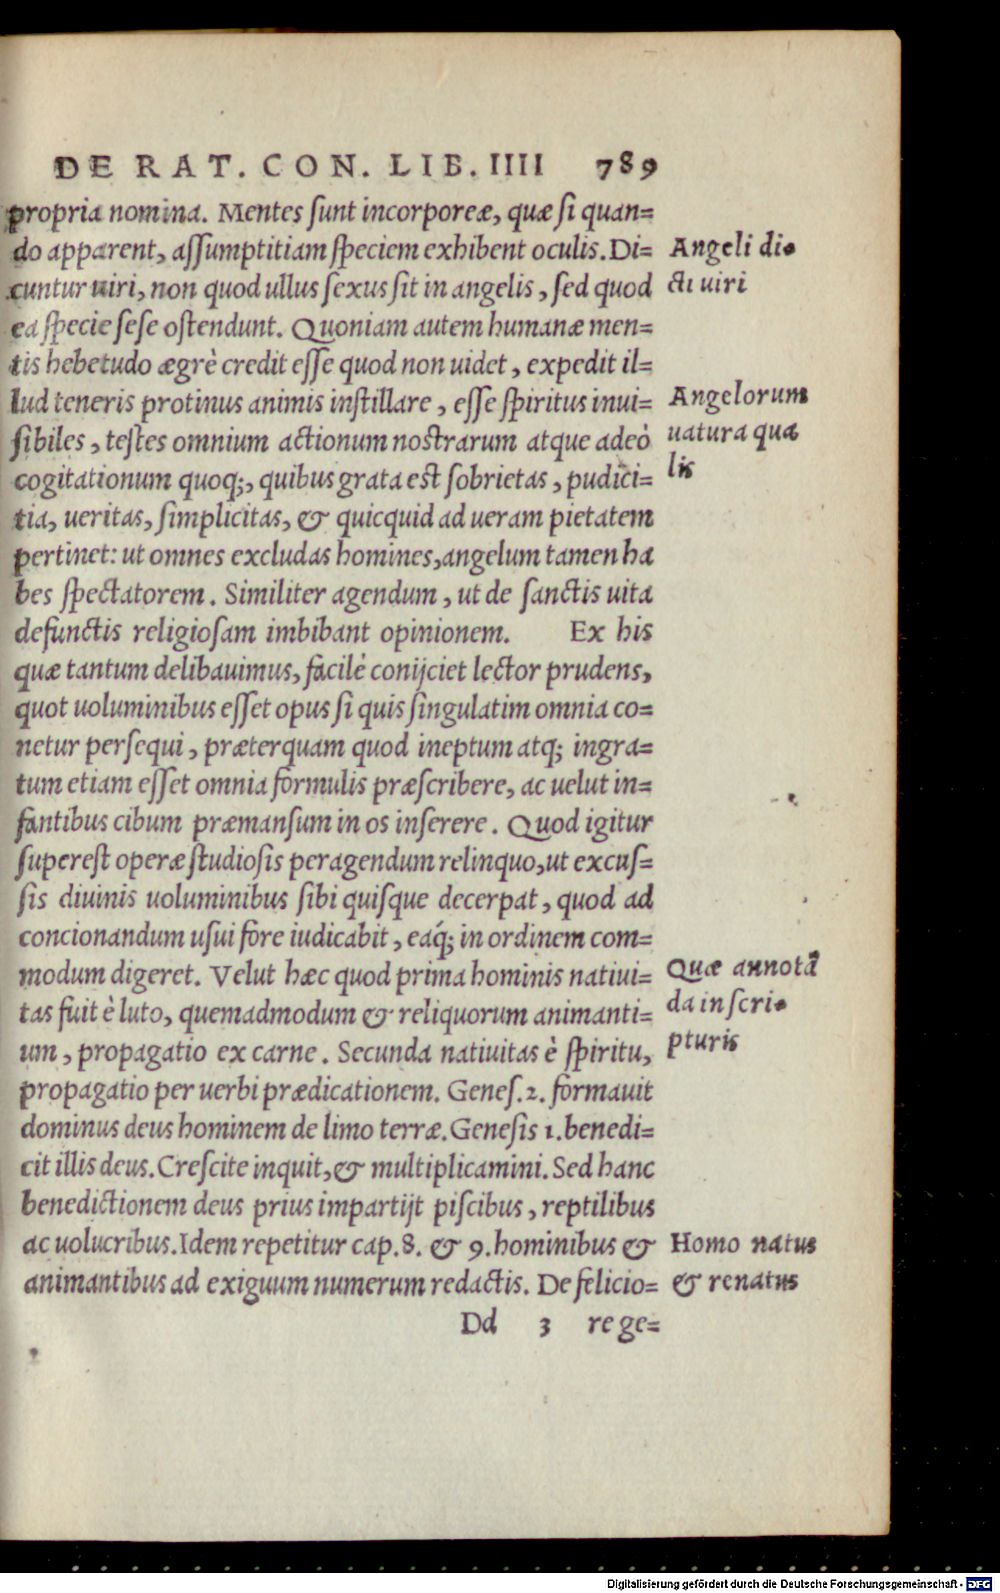 DE RAT. CON. LIB. IIII 789
propria nomina. Mentes ſunt incorporeæ, quæ ſi quan=
do apparent, aſſumptitiam ſpeciem exhibent oculis. Di=
cuntur uiri, non quod ullus ſexus ſit in angelis, ſed quod
ea ſpecie ſeſe oſtendunt. Quoniam autem humanæ men=
tis hebetudo ægrè credit eſſe quod non uidet, expedit il=
lud teneris protinus animis inſtillare, eſſe ſpiritus inui=
ſibiles, teſtes omnium actionum noſtrarum atque adeò
cogitationum quoq;, quibus grata est ſobrietas, pudici=
tia, ueritas, ſimplicitas, & quicquid ad ueram pietatem
pertinet: ut omnes excludas homines, angelum tamen ha
bes ſpectatorem. Similiter agendum, ut de ſanctis uita
defunctis religioſam imbibant opinionem. Ex his
quæ tantum delibauimus, facilè conijciet lector prudens,
quot uoluminibus eſſet opus ſi quis ſingulatim omnia co=
netur perſequi, præterquam quod ineptum atq; ingra=
tum etiam eſſet omnia formulis præſcribere, ac uelut in=
fantibus cibum præmanſum in os inſerere. Quod igitur
ſuperest operæ ſtudioſis peragendum relinquo, ut excuſ=
ſis diuinis uoluminibus ſibi quiſque decerpat, quod ad
concionandum uſui fore iudicabit, eaq́; in ordinem com=
modum digeret. Velut hæc quod prima hominis natiui=
tas fuit è luto, quemadmodum & reliquorum animanti=
um, propagatio ex carne. Secunda natiuitas è ſpiritu,
propagatio per uerbi prædicationem. Geneſ. 2. formauit
dominus deus hominem de limo terræ. Geneſis 1. benedi=
cit illis deus. Creſcite inquit, & multiplicamini. Sed hanc
benedictionem deus prius impartijt piſcibus, reptilibus
ac uolucribus. Idem repetitur cap. 8. & 9. hominibus &
animantibus ad exiguum numerum redactis. De felicio=
Dd 3 re ge=
Angeli di=
cti uiri
Angelorum
natura qua
lis
Quæ annotã
da in ſcri=
pturis
Homo natus
& renatus
Digitalisierung gefördert durch die Deutsche Forschungsgemeinschaft - DFG